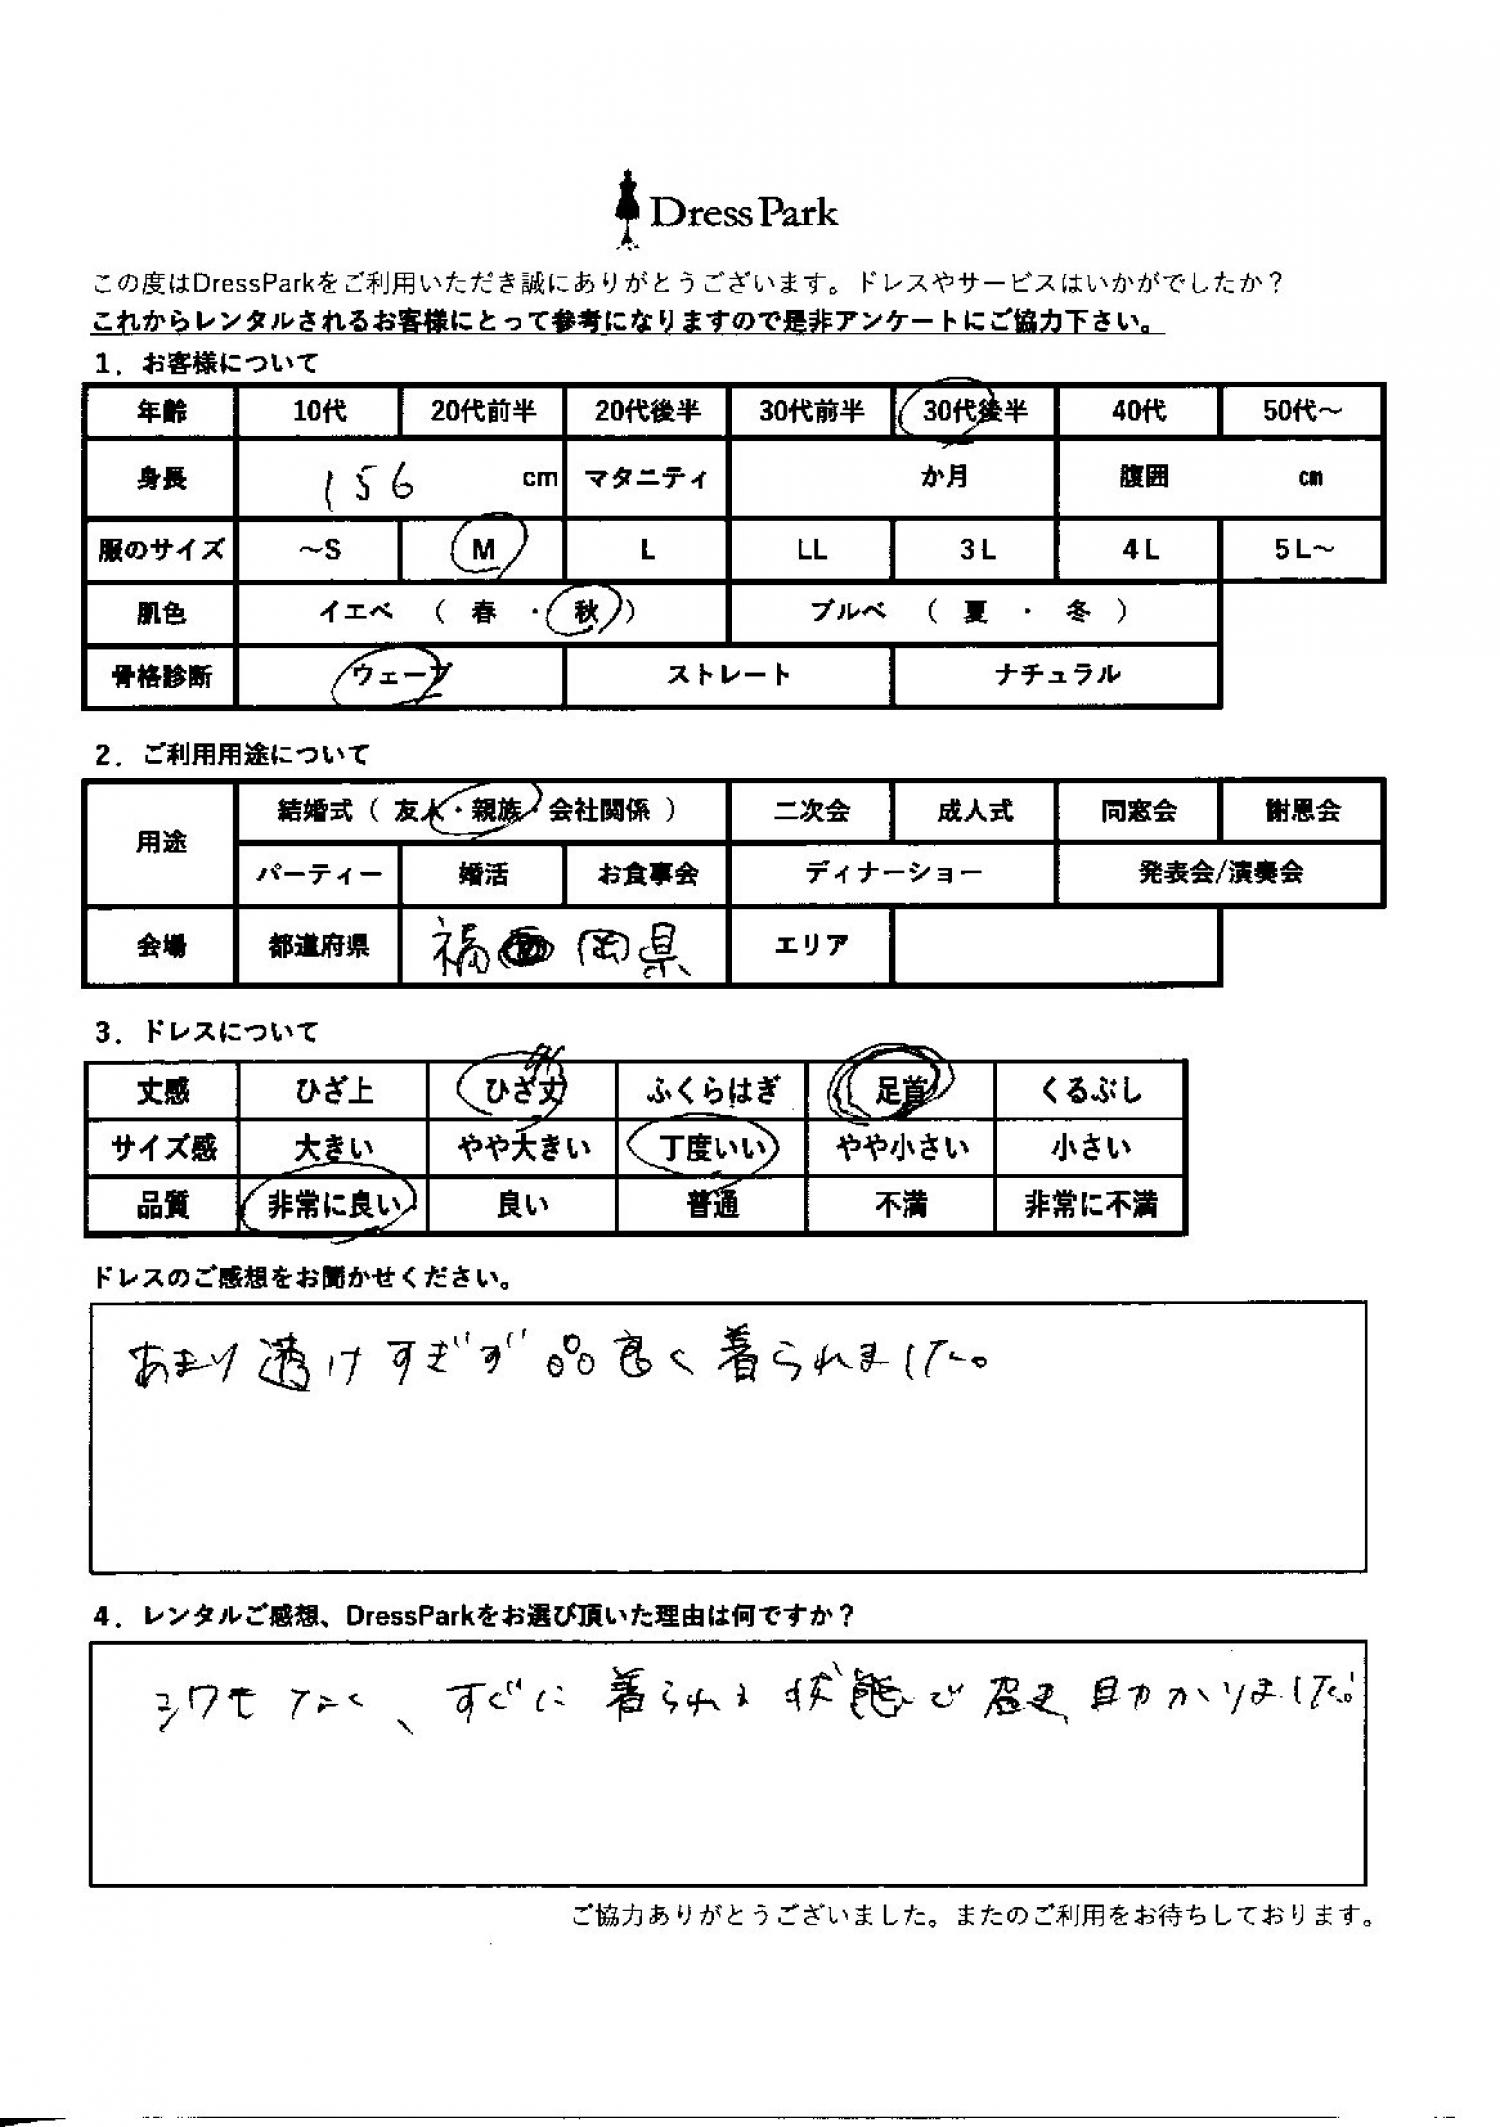 Dress Park
この度はDressParkをご利用いただき誠にありがとうございます。ドレスやサービスはいかがでしたか？
これからレンタルされるお客様にとって参考になりますので是非アンケートにご協力下さい。
1．お客様について
年齢 10代 20代前半 20代後半 30代前半 30代後半 40代 50代～
身長 156 cm マタニティ か月 腹囲 cm
服のサイズ ～S M L LL 3L 4L 5L～
肌色 イエベ （ 春 ・ 秋 ） ブルベ （ 夏 ・ 冬 ）
骨格診断 ウェーブ ストレート ナチュラル
2．ご利用用途について
用途 結婚式（ 友人・親族・会社関係 ） 二次会 成人式 同窓会 謝恩会
パーティー 婚活 お食事会 ディナーショー 発表会/演奏会
会場 都道府県 福岡県 エリア
3．ドレスについて
丈感 ひざ上 ひざ丈 ふくらはぎ 足首 くるぶし
サイズ感 大きい やや大きい 丁度いい やや小さい 小さい
品質 非常に良い 良い 普通 不満 非常に不満
ドレスのご感想をお聞かせください。
あまり透けすぎず品良く着られました。
4．レンタルご感想、DressParkをお選び頂いた理由は何ですか？
シワもなく、すぐに着られる状態で 助かりました。
ご協力ありがとうございました。またのご利用をお待ちしております。